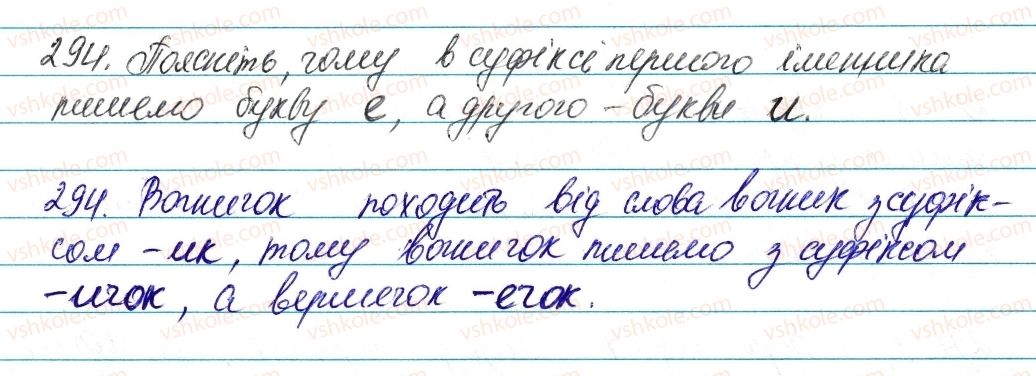 294. Поясніть, чому в суфіксі першого іменника
пишемо букву е, а другого – букви и.
294. Вогничок походить від слова вогник з суфік-
сом -ик, тому вогничок пишемо з суфіксом
-ичок, а вершечок -ечок.